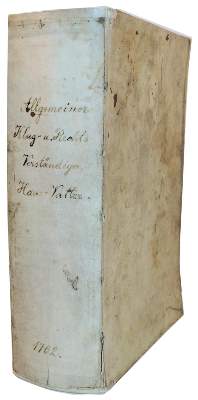 Allgemeiner
Klug- u. Rechts
Verständiger
Haus-Vatter.
1762.